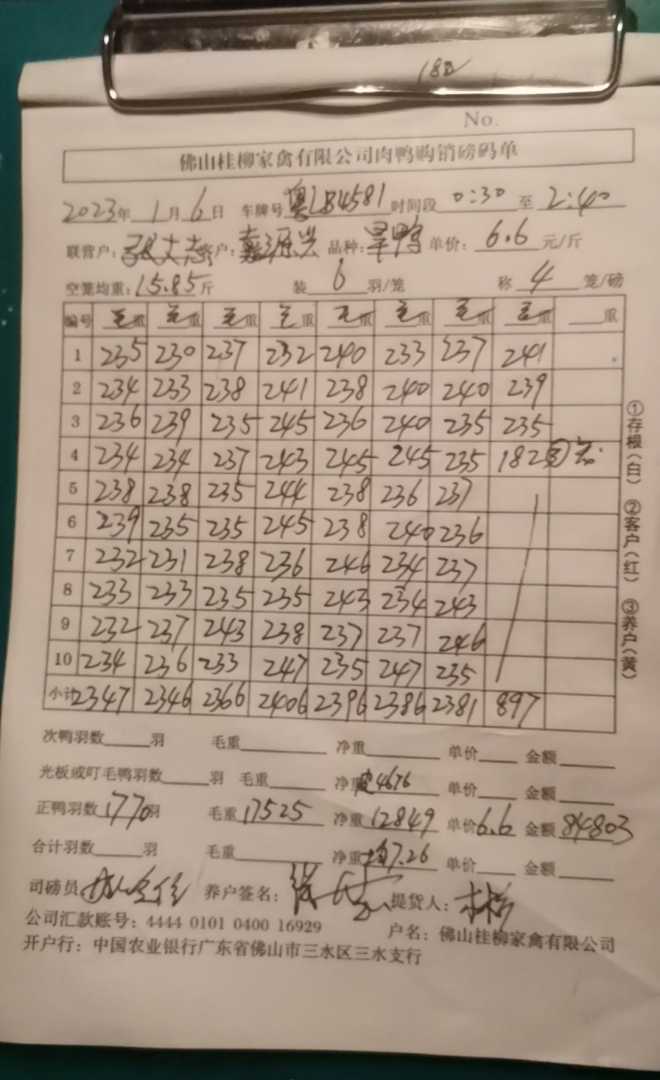 182
No.
佛山桂柳家禽有限公司肉鸭购销磅码单
2023年 1月 6日 车牌号 粤LB4581 时间段 0:30 至 2:40
联营户: 客户: 嘉源兴 品种: 旱鸭 单价: 6.6 元/斤
空笼均重: 15.85 斤 装 6 羽/笼 称 4 笼/磅
编号 毛重 毛重 毛重 毛重 毛重 毛重 毛重 毛重 重
1 235 230 237 232 240 233 237 241
2 234 233 238 241 238 240 240 239
3 236 239 235 245 236 240 235 235
4 234 234 237 243 245 245 235 182 ③
5 238 238 235 244 238 236 237
6 239 235 235 245 238 240 236
7 232 231 238 236 246 234 237
8 233 233 235 235 243 234 243
9 232 237 243 238 237 237 246
10 234 236 233 247 235 247 235
小计 2347 2346 2366 2406 2396 2386 2381 897
①存根(白) ②客户(红) ③养户(黄)
次鸭羽数 羽 毛重 净重 单价 金额
光板或叮毛鸭羽数 羽 毛重 净重 4676 单价 金额
正鸭羽数 1770羽 毛重 17525 净重 12849 单价 6.6 金额 84803
合计羽数 羽 毛重 净重 均7.26 单价 金额
司磅员 养户签名: 提货人:
公司汇款账号: 4444 0101 0400 16929 户名: 佛山桂柳家禽有限公司
开户行: 中国农业银行广东省佛山市三水区三水支行